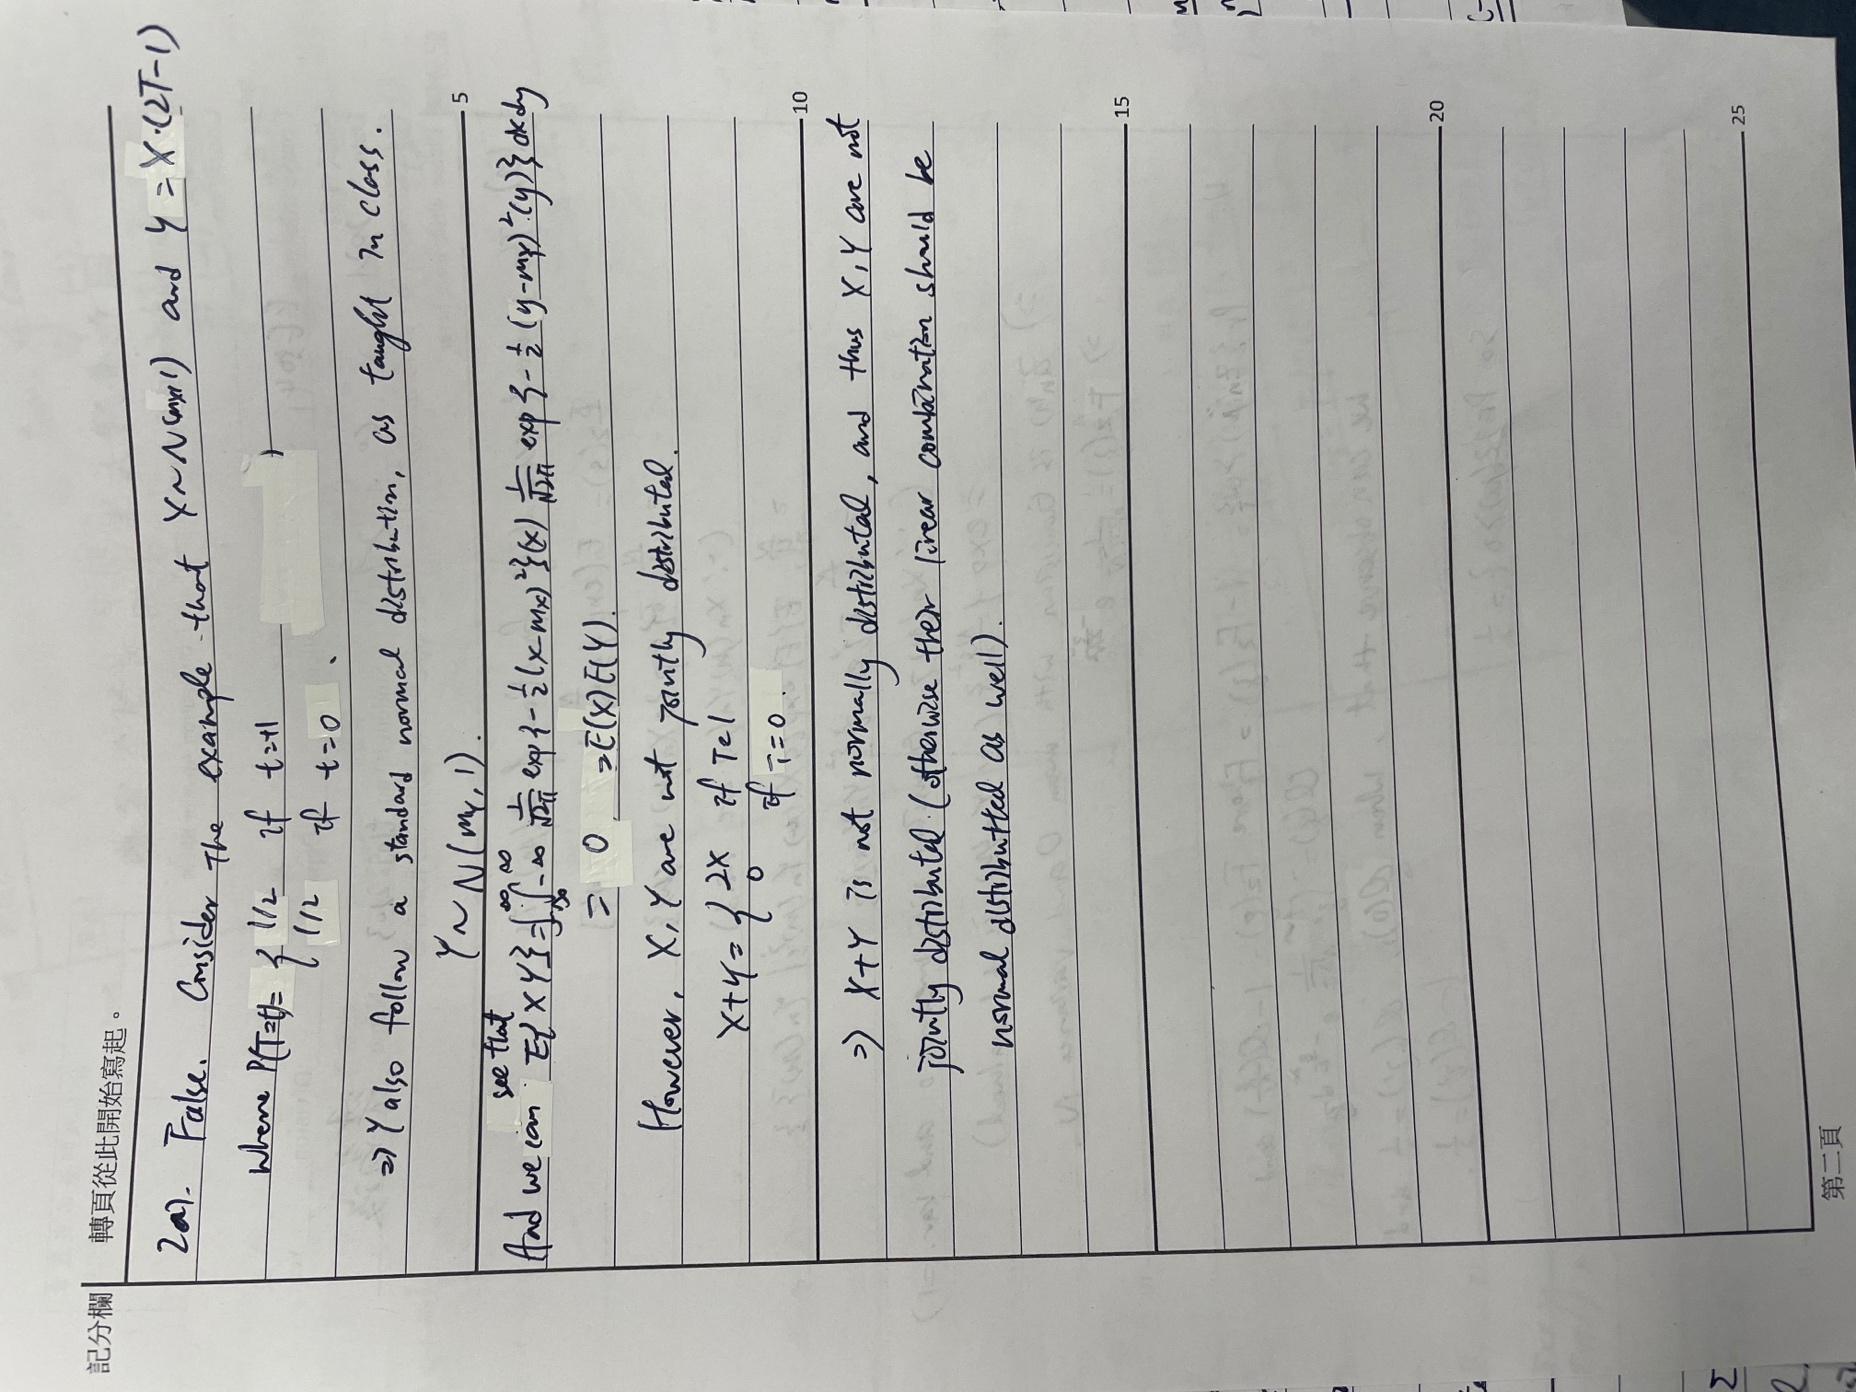 記分欄
轉頁從此開始寫起。
2a). False. Consider the example that X~N(mx,1) and Y=X·(2T-1)
where P(T=t)= { 1/2 if t=+1 ,
1/2 if t=0 .
=> Y also follow a standard normal distribution, as taught in class.
Y~N(my,1).
5
see that
And we can E{XY}=∫∫ -∞ ∞ 1/√2π exp{-1/2(x-mx)²}(x) 1/√2π exp{-1/2(y-my)²(y)}dxdy
= 0 =E(X)E(Y).
However, X,Y are not jointly distributed.
X+Y= { 2X if T=1
0 if T=0
10
=> X+Y is not normally distributed, and thus X,Y are not
jointly distributed (otherwise their linear combination should be
normal distributted as well).
15
20
25
第二頁